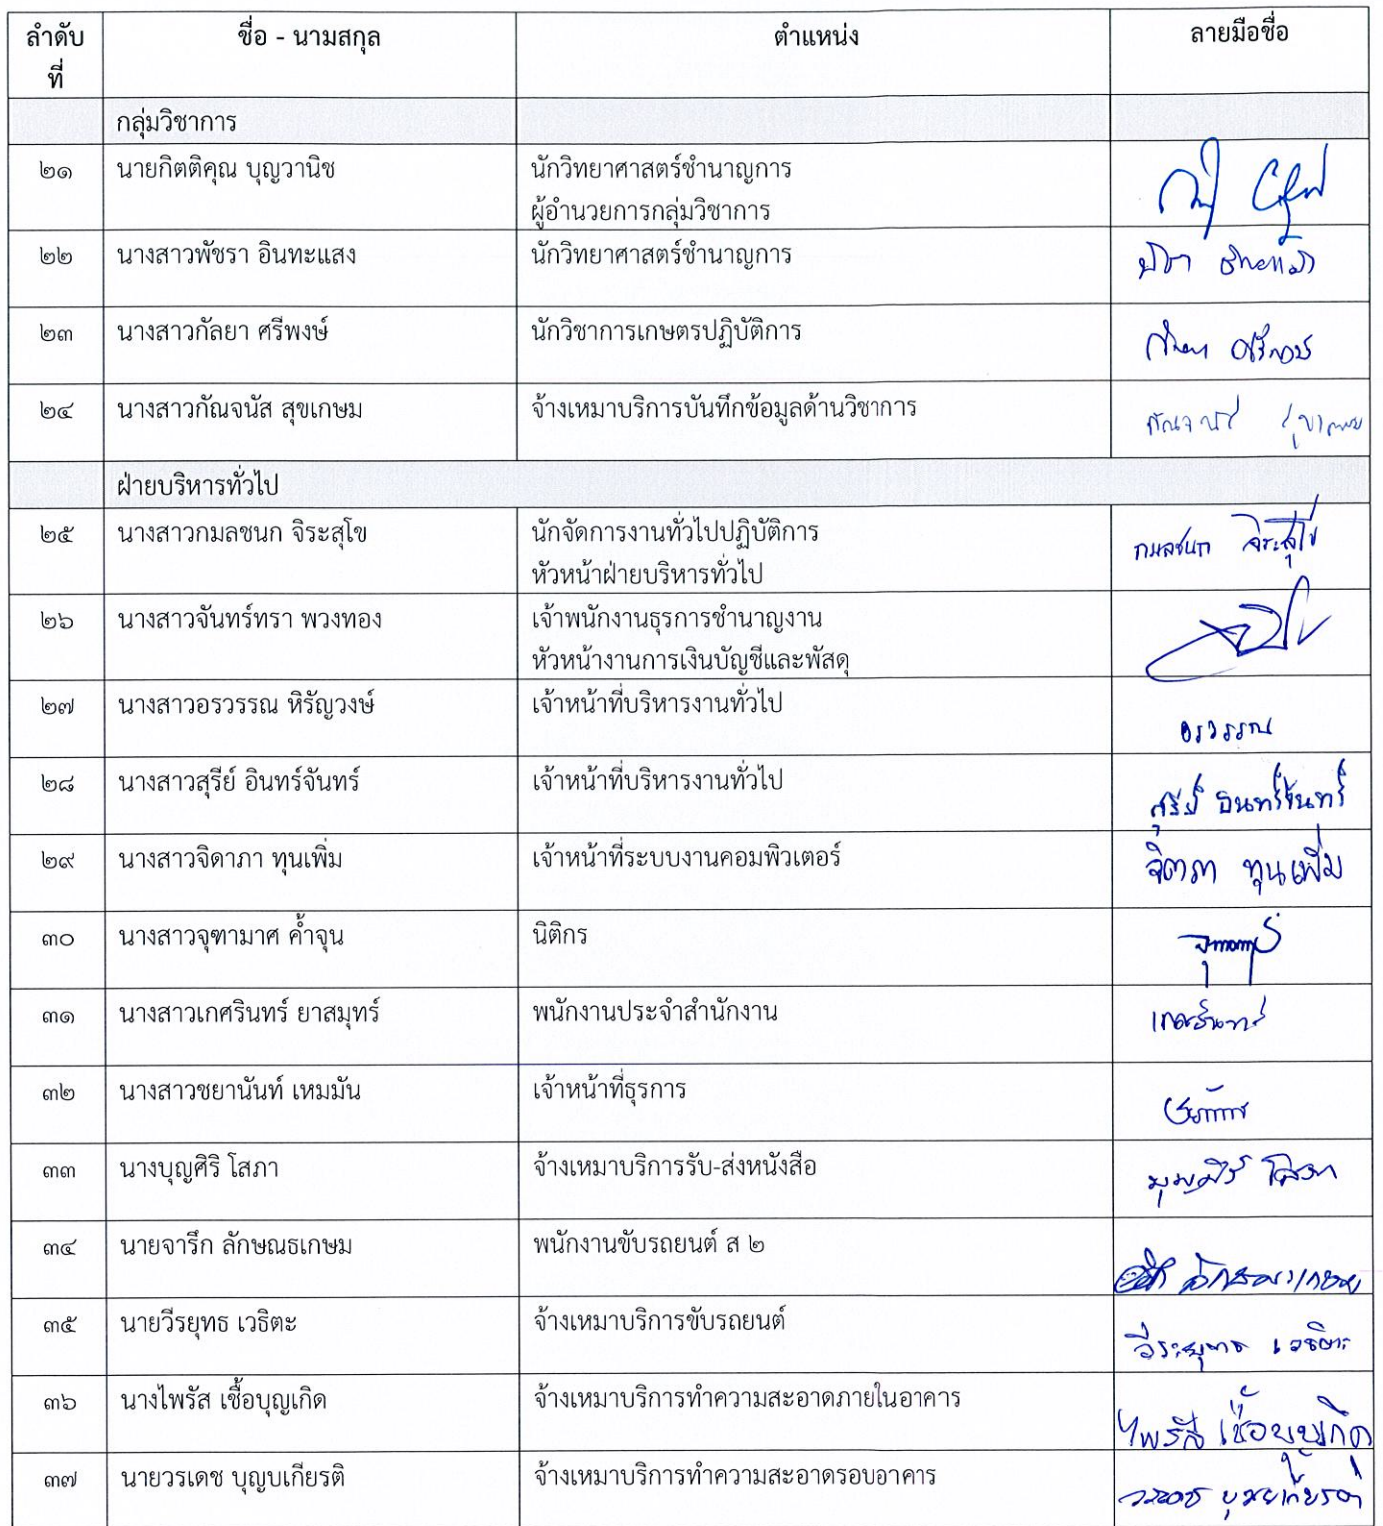 ลำดับ ชื่อ - นามสกุล ตำแหน่ง ลายมือชื่อ
ที่
กลุ่มวิชาการ
๒๑ นายกิตติคุณ บุญวานิช นักวิทยาศาสตร์ชำนาญการ
ผู้อำนวยการกลุ่มวิชาการ
๒๒ นางสาวพัชรา อินทะแสง นักวิทยาศาสตร์ชำนาญการ
๒๓ นางสาวกัลยา ศรีพงษ์ นักวิชาการเกษตรปฏิบัติการ
๒๔ นางสาวกัณจนัส สุขเกษม จ้างเหมาบริการบันทึกข้อมูลด้านวิชาการ
ฝ่ายบริหารทั่วไป
๒๕ นางสาวกมลชนก จิระสุโข นักจัดการงานทั่วไปปฏิบัติการ กมลชนก จิระสุโข
หัวหน้าฝ่ายบริหารทั่วไป
๒๖ นางสาวจันทร์ทรา พวงทอง เจ้าพนักงานธุรการชำนาญงาน
หัวหน้างานการเงินบัญชีและพัสดุ
๒๗ นางสาวอรวรรณ หิรัญวงษ์ เจ้าหน้าที่บริหารงานทั่วไป อรวรรณ
๒๘ นางสาวสุรีย์ อินทร์จันทร์ เจ้าหน้าที่บริหารงานทั่วไป สุรีย์ อินทร์จันทร์
๒๙ นางสาวจิดาภา ทุนเพิ่ม เจ้าหน้าที่ระบบงานคอมพิวเตอร์ จิดาภา ทุนเพิ่ม
๓๐ นางสาวจุฑามาศ ค้ำจุน นิติกร
๓๑ นางสาวเกศรินทร์ ยาสมุทร์ พนักงานประจำสำนักงาน เกศรินทร์
๓๒ นางสาวชยานันท์ เหมมัน เจ้าหน้าที่ธุรการ
๓๓ นางบุญศิริ โสภา จ้างเหมาบริการรับ-ส่งหนังสือ บุญศิริ โสภา
๓๔ นายจารึก ลักษณธเกษม พนักงานขับรถยนต์ ส ๒
๓๕ นายวีรยุทธ เวธิตะ จ้างเหมาบริการขับรถยนต์ วีระยุทธ เวธิตะ
๓๖ นางไพรัส เชื้อบุญเกิด จ้างเหมาบริการทำความสะอาดภายในอาคาร ไพรัส เชื้อบุญเกิด
๓๗ นายวรเดช บุญบเกียรติ จ้างเหมาบริการทำความสะอาดรอบอาคาร